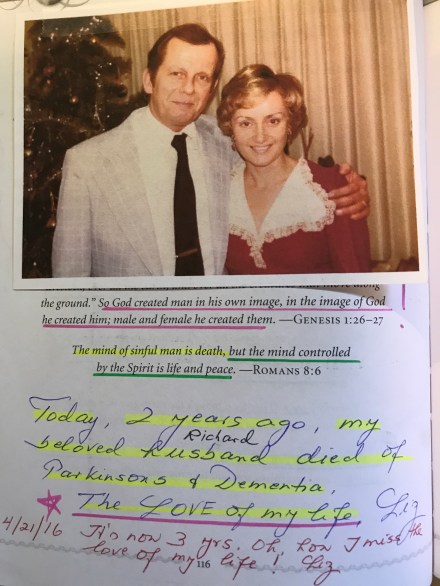 the ground." So God created man in his own image, in the image of God
he created him; male and female he created them. —GENESIS 1:26–27
The mind of sinful man is death, but the mind controlled
by the Spirit is life and peace. —ROMANS 8:6
Today, 2 years ago, my
beloved husband Richard died of
Parkinsons & Dementia,
The LOVE of my life, Liz
4/21/16 It's now 3 yrs. Oh, how I miss the
love of my life! Liz
116